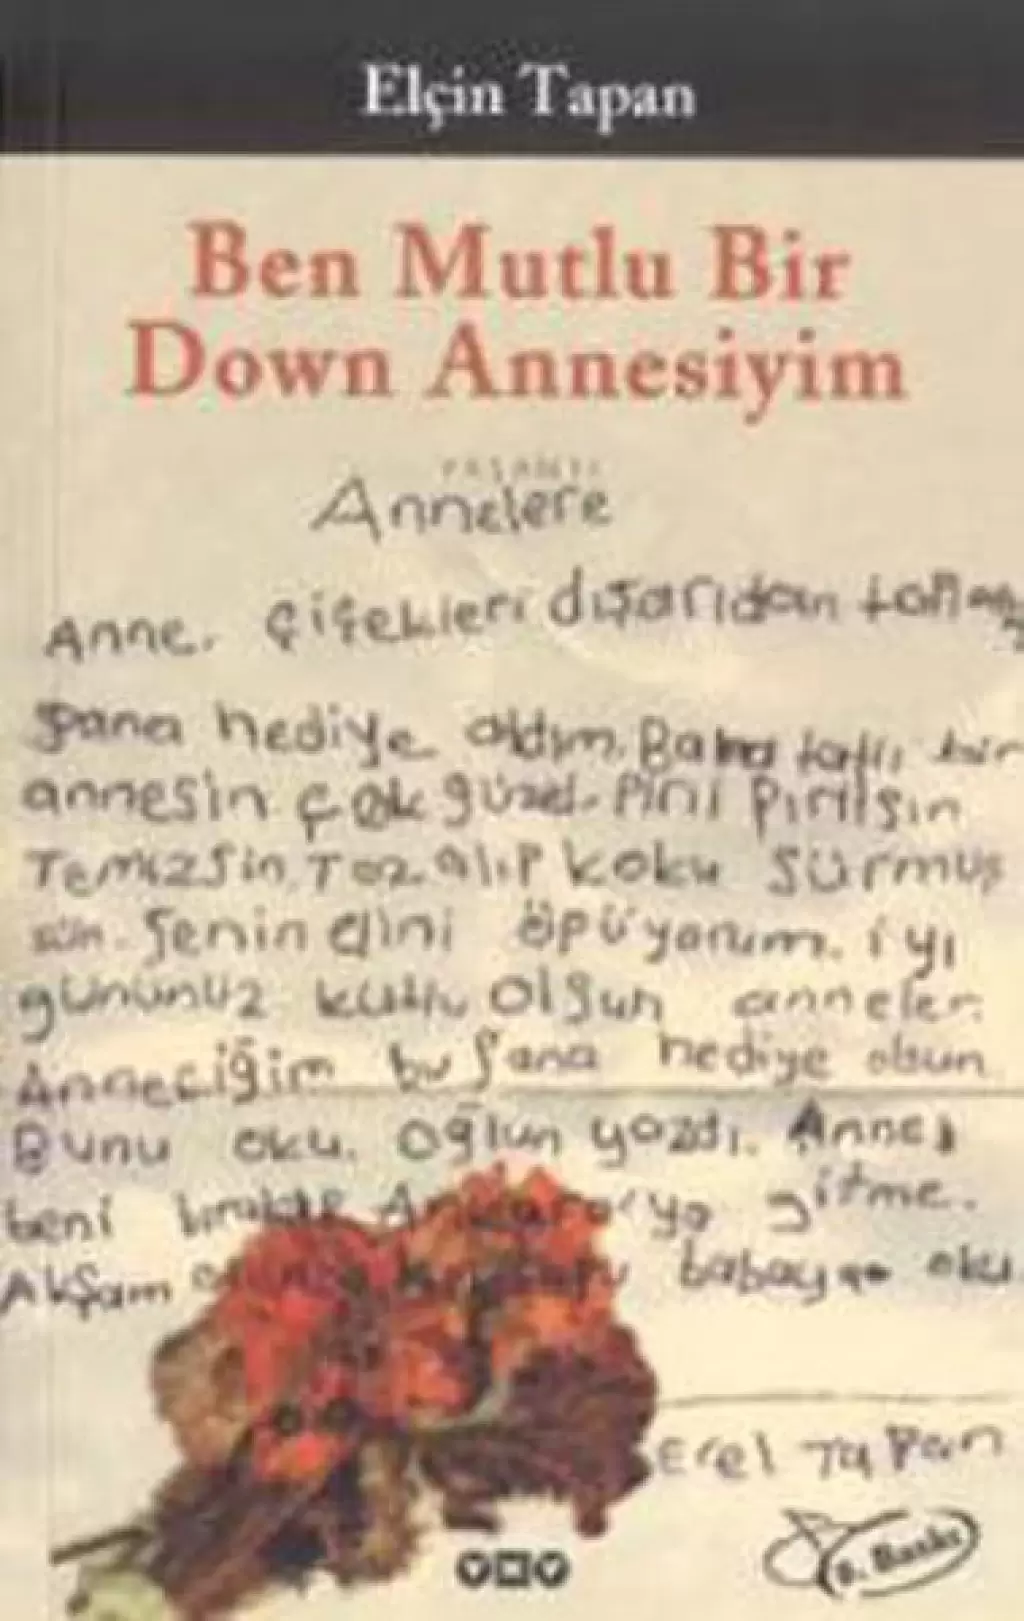 Elçin Tapan
Ben Mutlu Bir
Down Annesiyim
YAŞANTI
Annelere
Anne. Çiçekleri dışarıdan
şana hediye aldım. Bana tatlı bir
annesin çok güzel. Pırıl pırılşın
Temizşin. Toz alıp koku sürmüş
sün. Şenin elini öpüyorum. iyi
gününüz kutlu olşun anneler.
Anneciğim bu şana hediye olsun
Bunu oku. oğlun yazdı. Anne
beni Ankara'ya gitme.
Akşam babaya oku.
Erel Tapan
YKY
Baskı